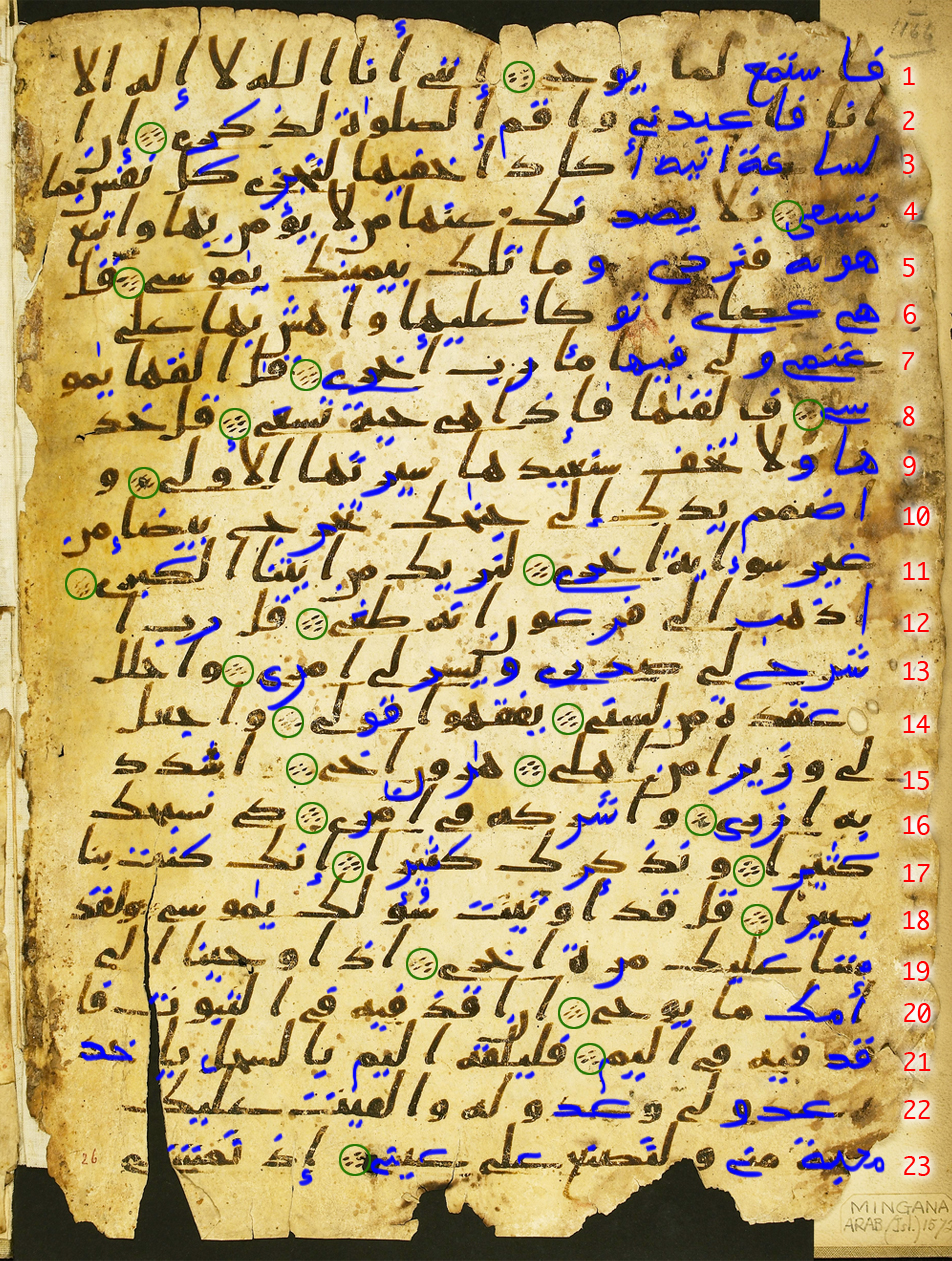 1 فاستمع لما يوحى ○ إنني أنا الله لا إله إلا
2 انا فاعبدني واقم الصلوة لذكرى ○ ان ا
3 لساعة اتية أكاد اخفيها لتجزى كل نفس بما
4 تسعى ○ فلا يصدنك عنها من لا يؤمن بها واتبع
5 هويه فتردى وما تلك بيمينك يموسى ○ قل
6 هي عصاي اتوكأ عليها واهش بها على
7 غنمي ولي فيها مأرب اخرى ○ قل القها يمو
8 سى ○ فالقيها فاذا هي حية تسعى ○ قل خذ
9 ها ولا تخف سنعيدها سيرتها الأولى ○ و
10 اضمم يدك إلى جنحك تخرج بيضا من
11 غير سوء اية اخرى ○ لنريك من ايتنا الكبرى ○
12 اذهب الى فرعون انه طغى ○ قل رب ا
13 شرح لي صدري ويسر لي امري ○ واحلل
14 عقدة من لسني ○ يفقهوا قولي ○ واجعل
15 لي وزيرا من اهلي ○ هرون اخي ○ اشدد
16 به ازري ○ واشركه في امري ○ كي نسبحك
17 كثيرا ○ ونذكرك كثيرا ○ إنك كنت بنا
18 بصيرا ○ قل قد أوتيت سؤلك يموسى ولقد
19 مننا عليك مرة اخرى ○ اذ اوحينا الى
20 أمك ما يوحى ○ ان اقذفيه في التبوت فا
21 قذفيه في اليم ○ فليلقه اليم بالسحل ياخذ
22 ه عدو لي وعدو له والقيت عليك
23 محبة مني ولتصنع على عيني ○ إذ تمشي
26
MINGANA
ARAB. (Isl.)